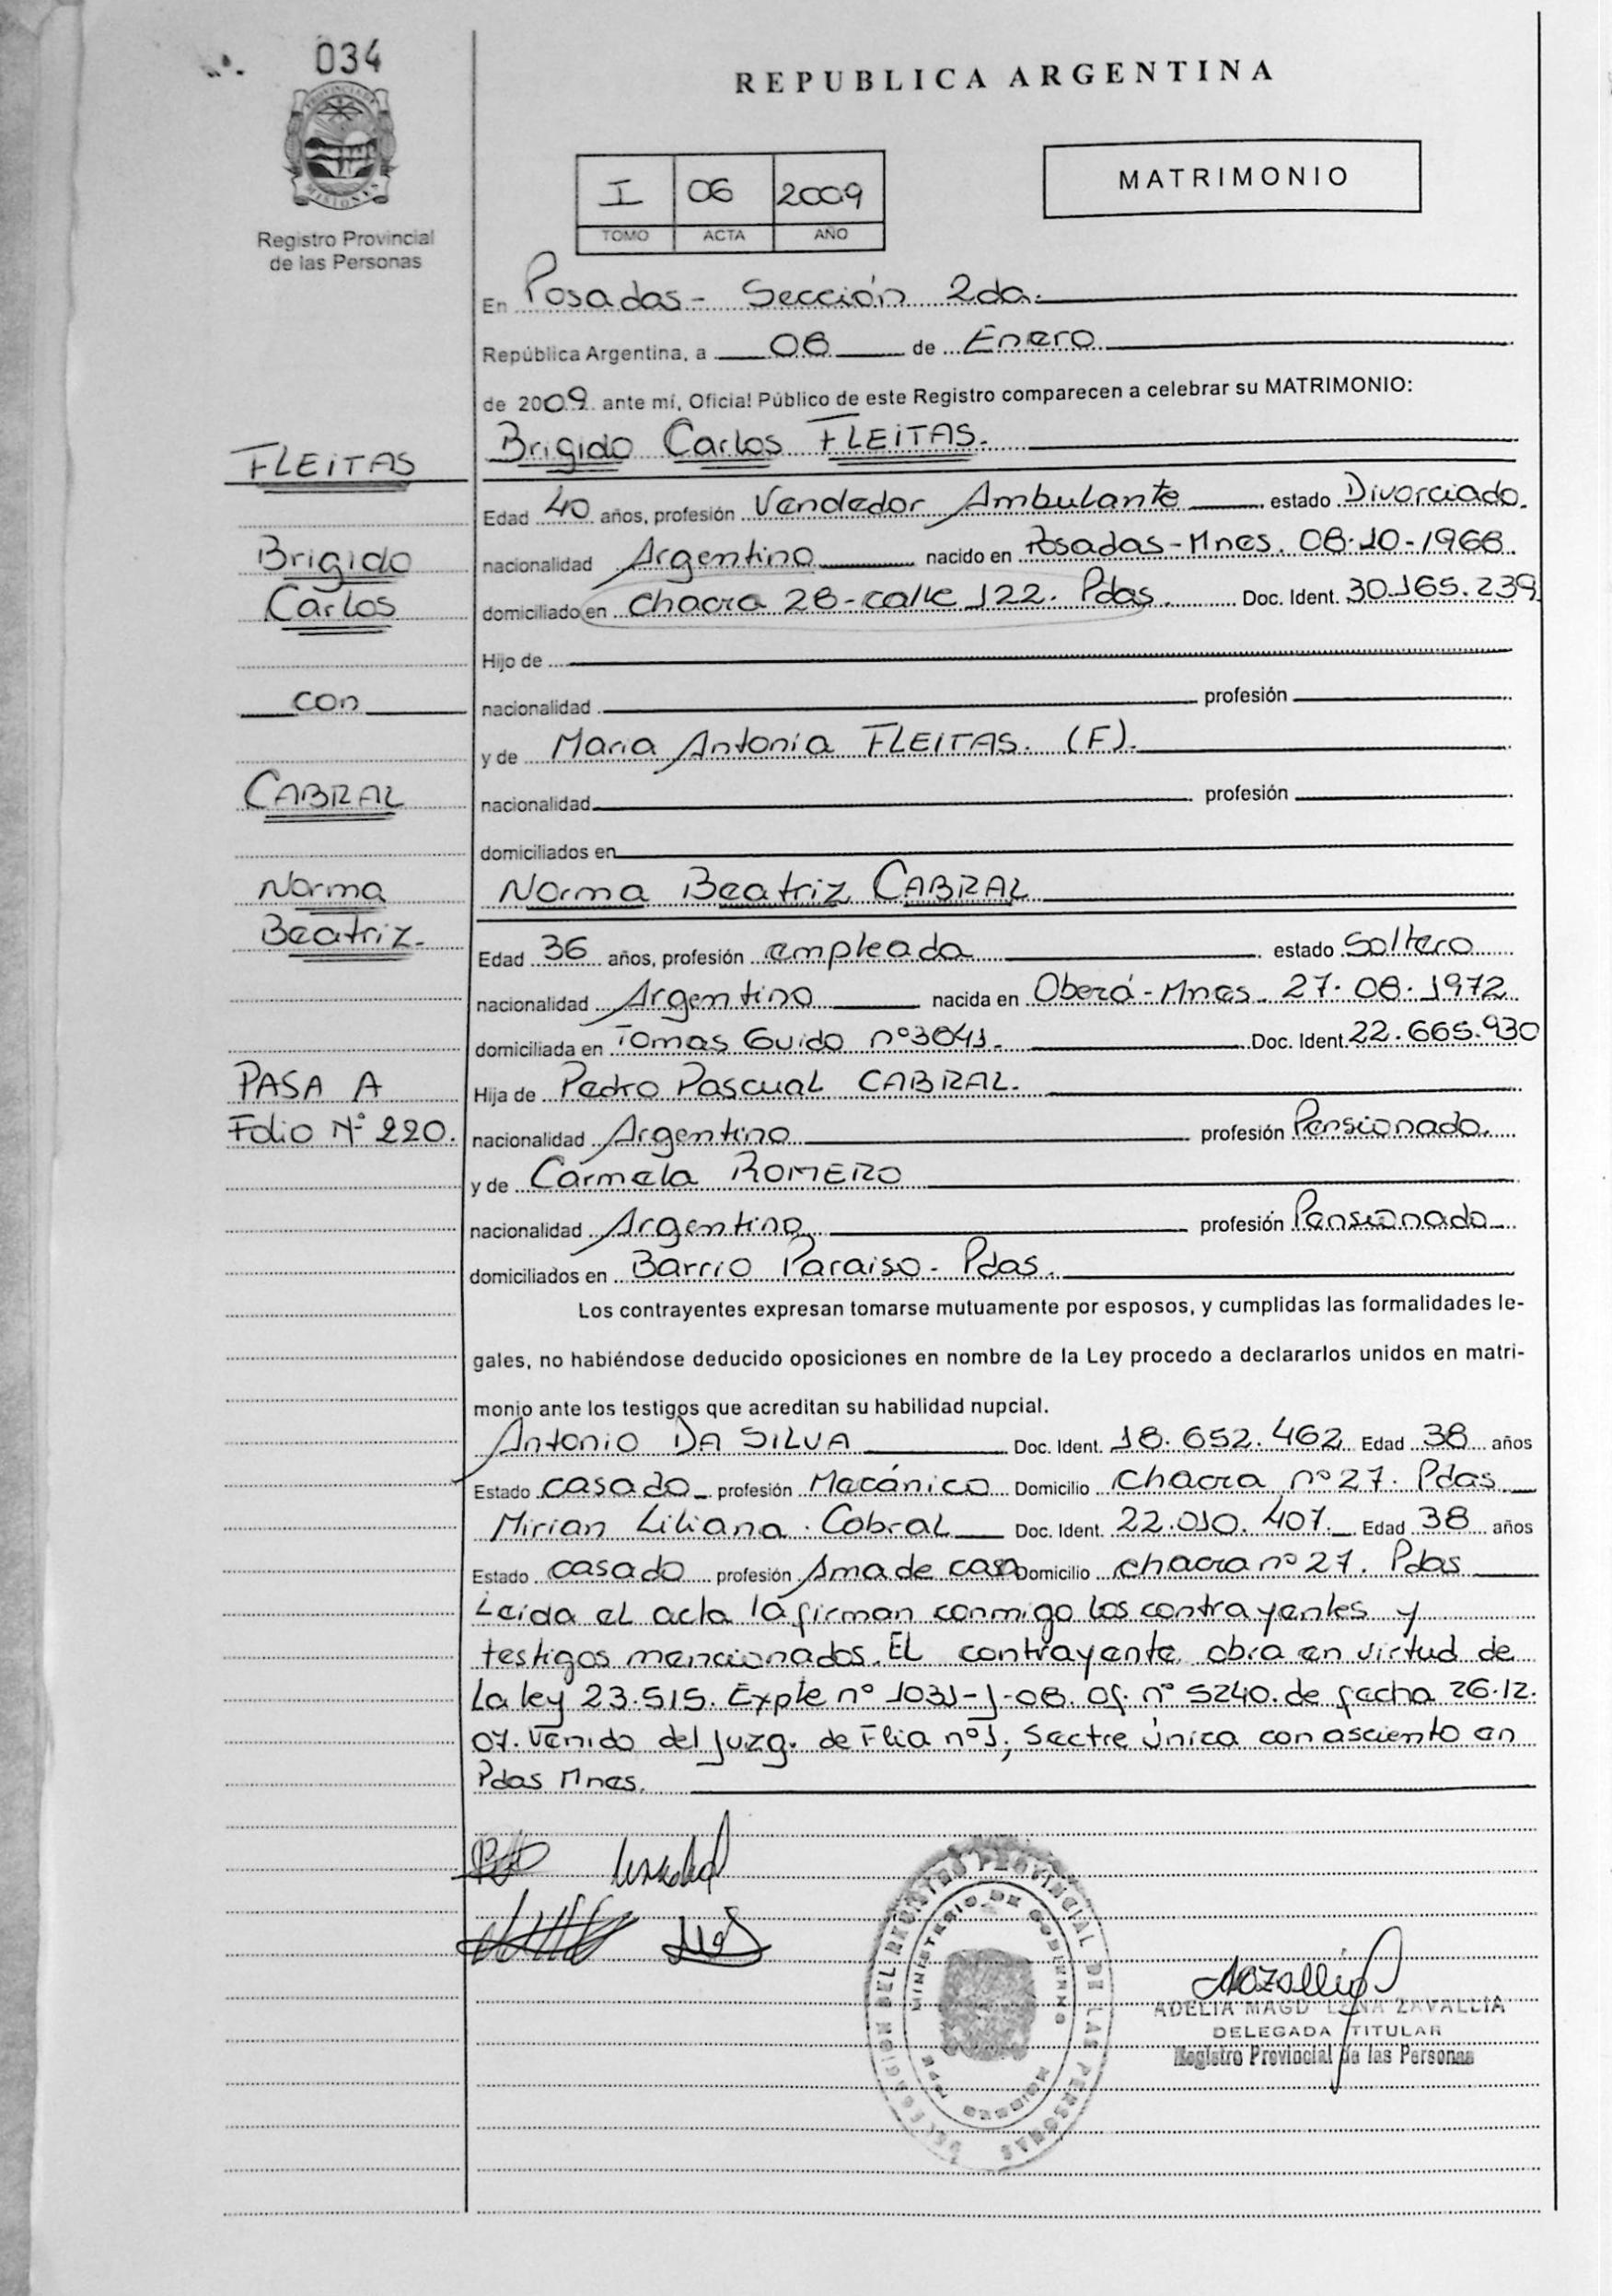 034
REPUBLICA ARGENTINA
Registro Provincial
de las Personas
I 06 2009
TOMO ACTA AÑO
MATRIMONIO
En Posadas - Sección 2da.
República Argentina, a 08 de Enero
de 2009 ante mí, Oficial Público de este Registro comparecen a celebrar su MATRIMONIO:
FLEITAS
Brigido Carlos FLEITAS.
Edad 40 años, profesión Vendedor Ambulante estado Divorciado.
Brigido
nacionalidad Argentino nacido en Posadas-Mnes. 08-10-1968.
Carlos
domiciliado en chacra 28-calle 122. Pdas. Doc. Ident. 30.165.239
Hijo de
con
nacionalidad profesión
y de Maria Antonia FLEITAS. (F).
CABRAL
nacionalidad profesión
domiciliados en
Norma
Norma Beatriz CABRAL
Beatriz.
Edad 36 años, profesión empleada estado Soltera
nacionalidad Argentina nacida en Oberá-Mnes. 27.08.1972
domiciliada en Tomas Guido nº3841. Doc. Ident. 22.665.930
PASA A
Hija de Pedro Pascual CABRAL.
Folio Nº 220.
nacionalidad Argentino profesión Pensionado.
y de Carmela ROMERO
nacionalidad Argentina profesión Pensionado
domiciliados en Barrio Paraiso - Pdas.
Los contrayentes expresan tomarse mutuamente por esposos, y cumplidas las formalidades le-
gales, no habiéndose deducido oposiciones en nombre de la Ley procedo a declararlos unidos en matri-
monio ante los testigos que acreditan su habilidad nupcial.
Antonio DA SILVA Doc. Ident. 18.652.462 Edad 38 años
Estado casado profesión Mecánico Domicilio chacra nº27. Pdas
Mirian Liliana Cabral Doc. Ident. 22.010.407. Edad 38 años
Estado casada profesión Ama de casa Domicilio chacra nº27. Pdas
Leida el acta la firman conmigo los contrayentes y
testigos mencionados. El contrayente obra en virtud de
La ley 23.515. Expte nº 1031-J-08. Of. nº 5240. de fecha 26.12.
07. Venido del Juzg. de Flia nº1, Sectre única con asciento en
Pdas Mnes.
DEL REGISTRO PROVINCIAL DE LAS PERSONAS
MINISTERIO DE GOBIERNO
MISIONES
ADELIA MAGDALENA ZAVALLIA
DELEGADA TITULAR
Registro Provincial de las Personas